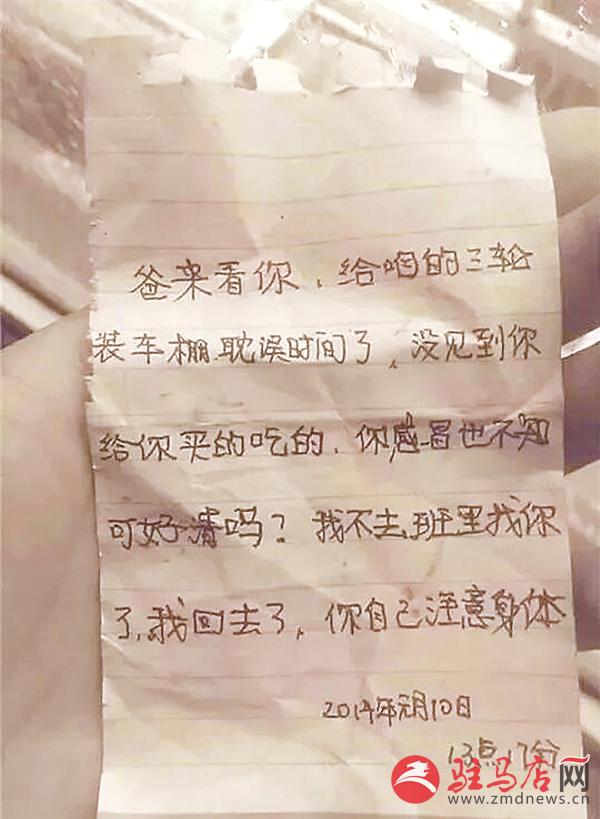 爸来看你，给咱的三轮
装车棚，耽误时间了，没见到你
给你买的吃的，你感冒也不知
可好清吗？我不去班里找你
了，我回去了，你自己注意身体
2014年元月10日
13点17分
驻马店网
www.zmdnews.cn